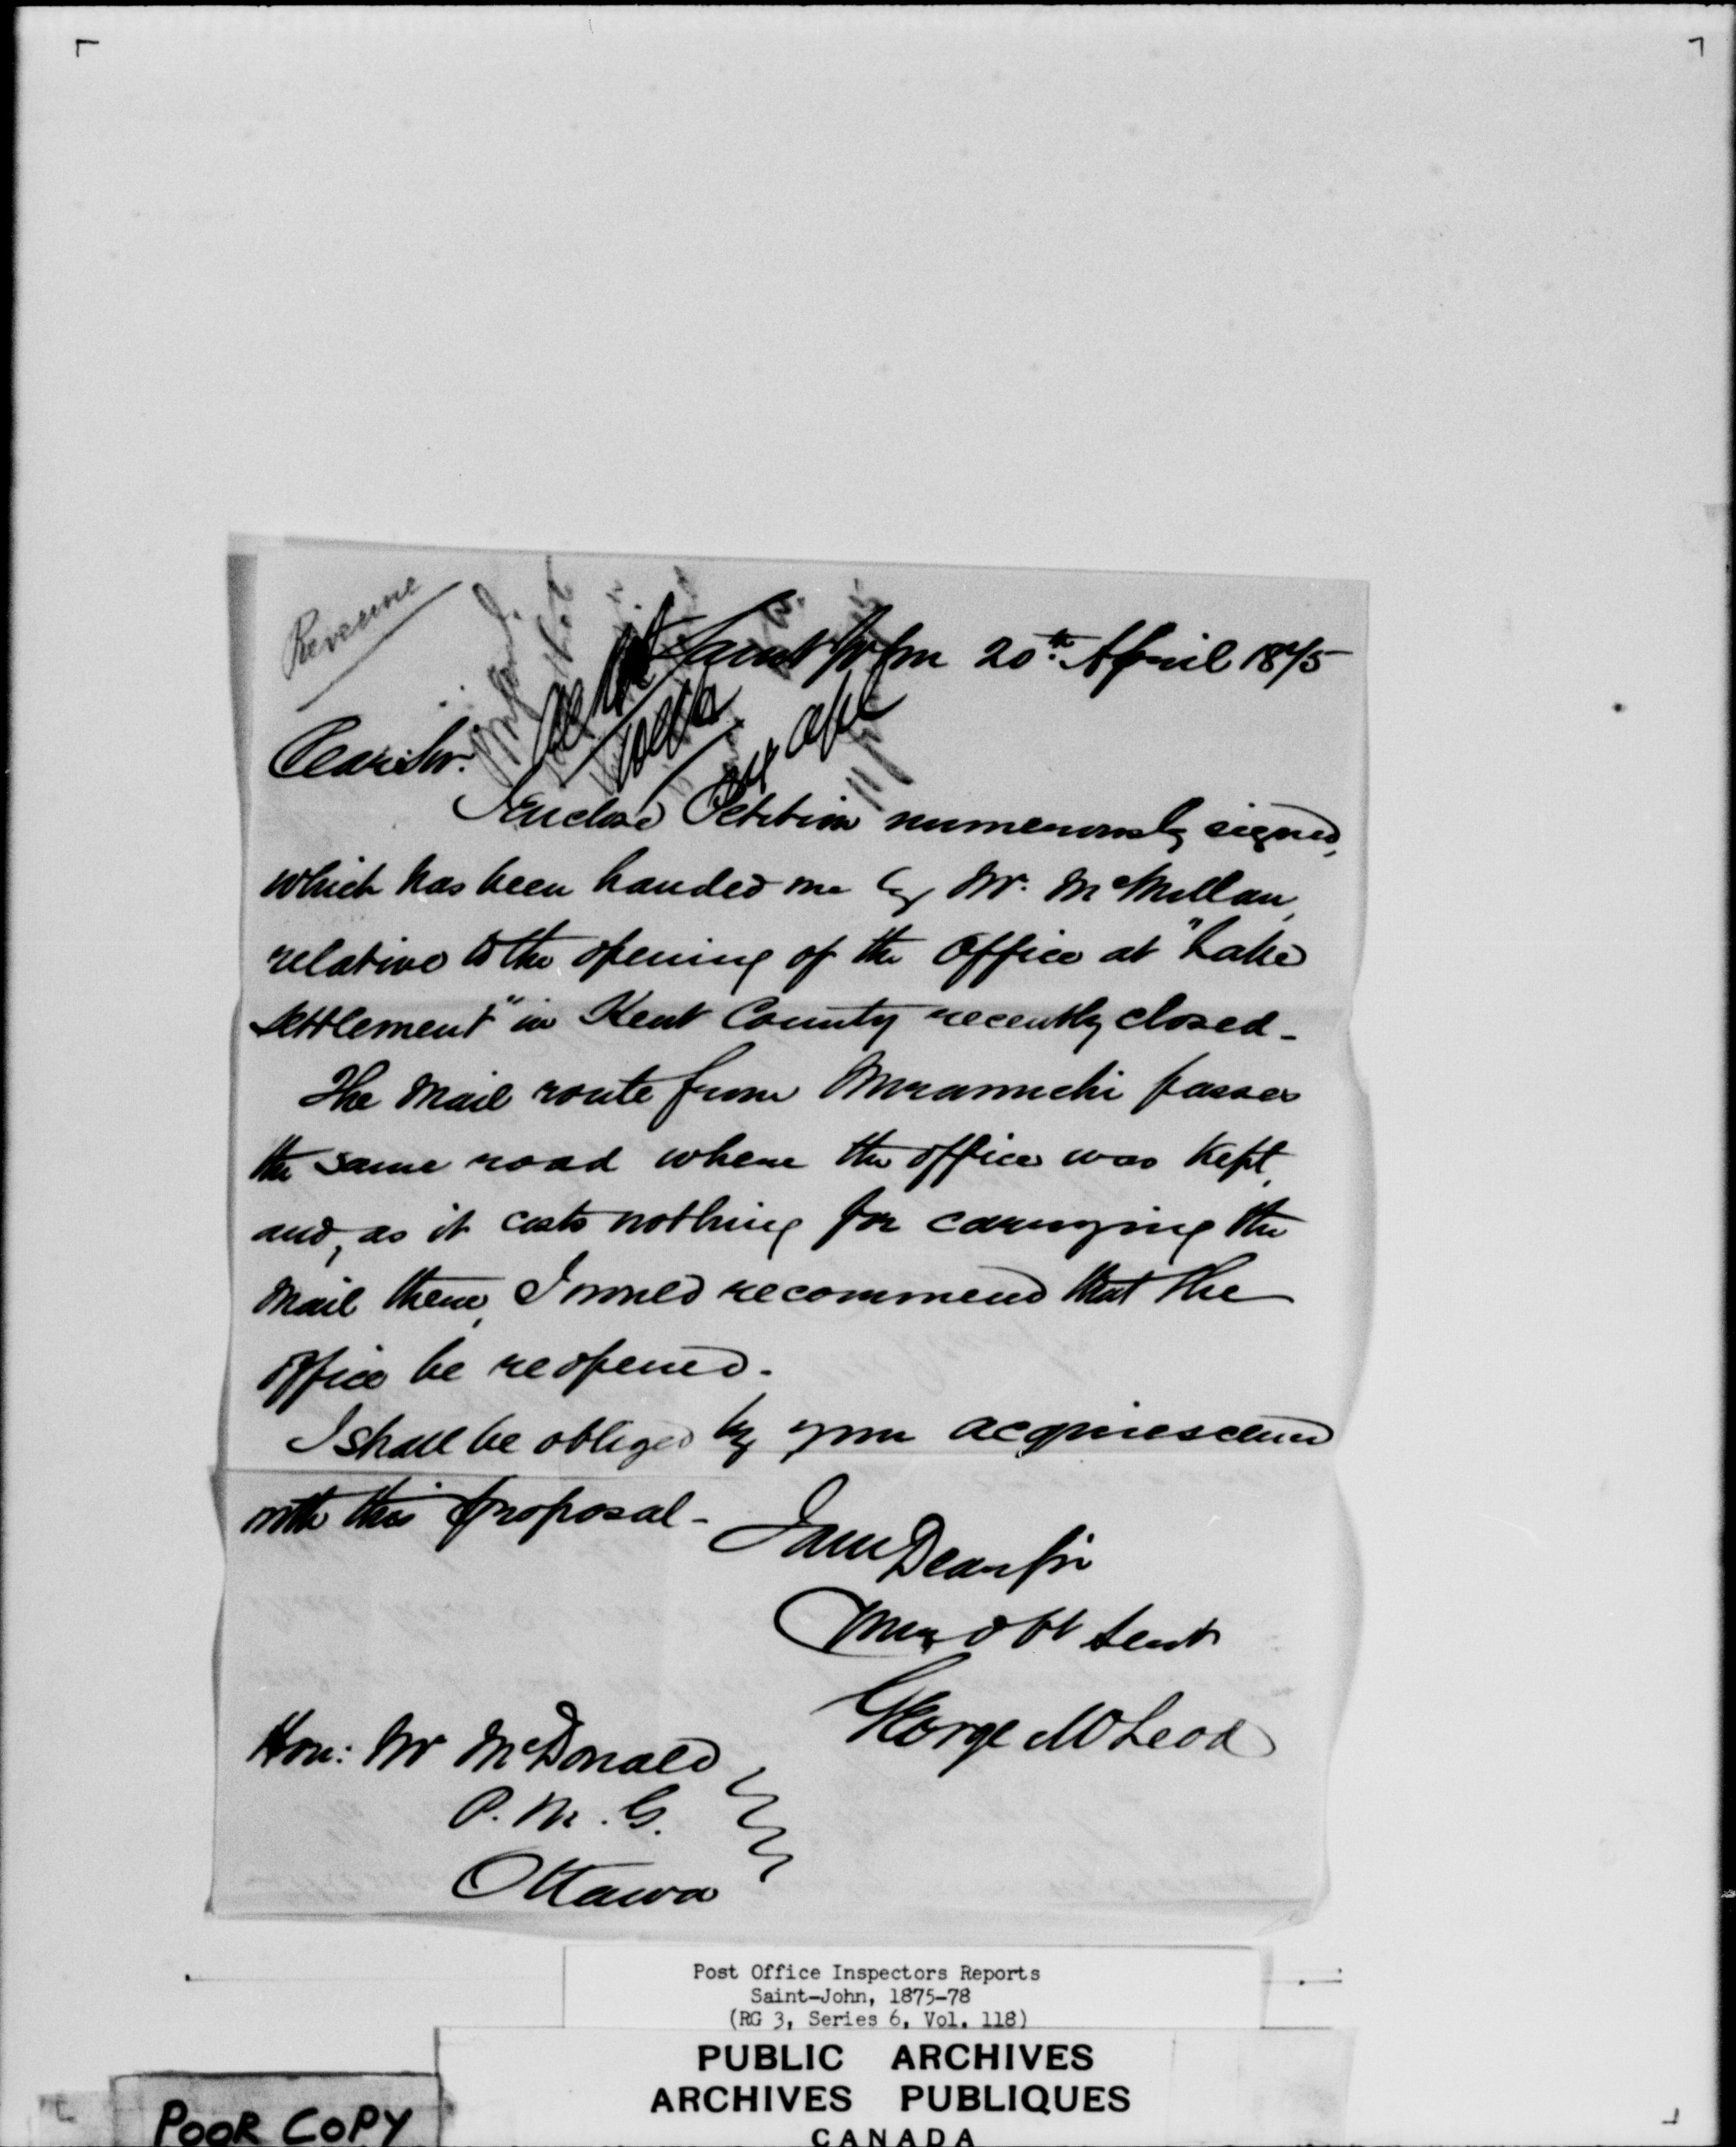 Revenue
Saint John 20th April 1875
Dear Sir.
I Enclose Petition numerously signed,
which has been handed me by Mr. McMillan,
relative to the opening of the Office at "Lake
Settlement" in Kent County recently closed-
The Mail route from Miramichi passes
the same road where the office was kept,
and, as it costs nothing for carrying the
Mail there, I would recommend that the
Office be reopened.
I shall be obliged by your acquiescence
with this proposal-
I am Dear Sir
Your obt Servt
George McLeod
Hon: Mr McDonald
P.M.G.
Ottawa
Post Office Inspectors Reports
Saint-John, 1875-78
(RG 3, Series 6, Vol. 118)
PUBLIC ARCHIVES
ARCHIVES PUBLIQUES
CANADA
POOR COPY